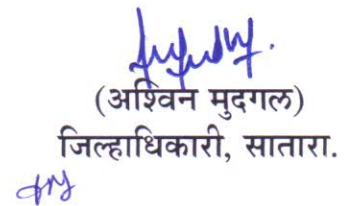 (अश्विन मुदगल)
जिल्हाधिकारी, सातारा.